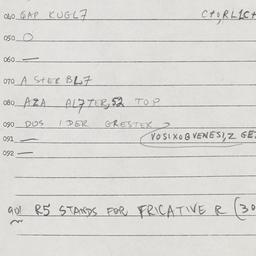 040 GAP KUGL7 C+O,RL1C+
050 O
060 —
070 A STER BL7
080 AZA A17TER,52 TOP
090 DOS IDER GRESTER
091 — VOSIXOBVENESI,Z GE
092 —
90! R5 STANDS FOR FRICATIVE R (30